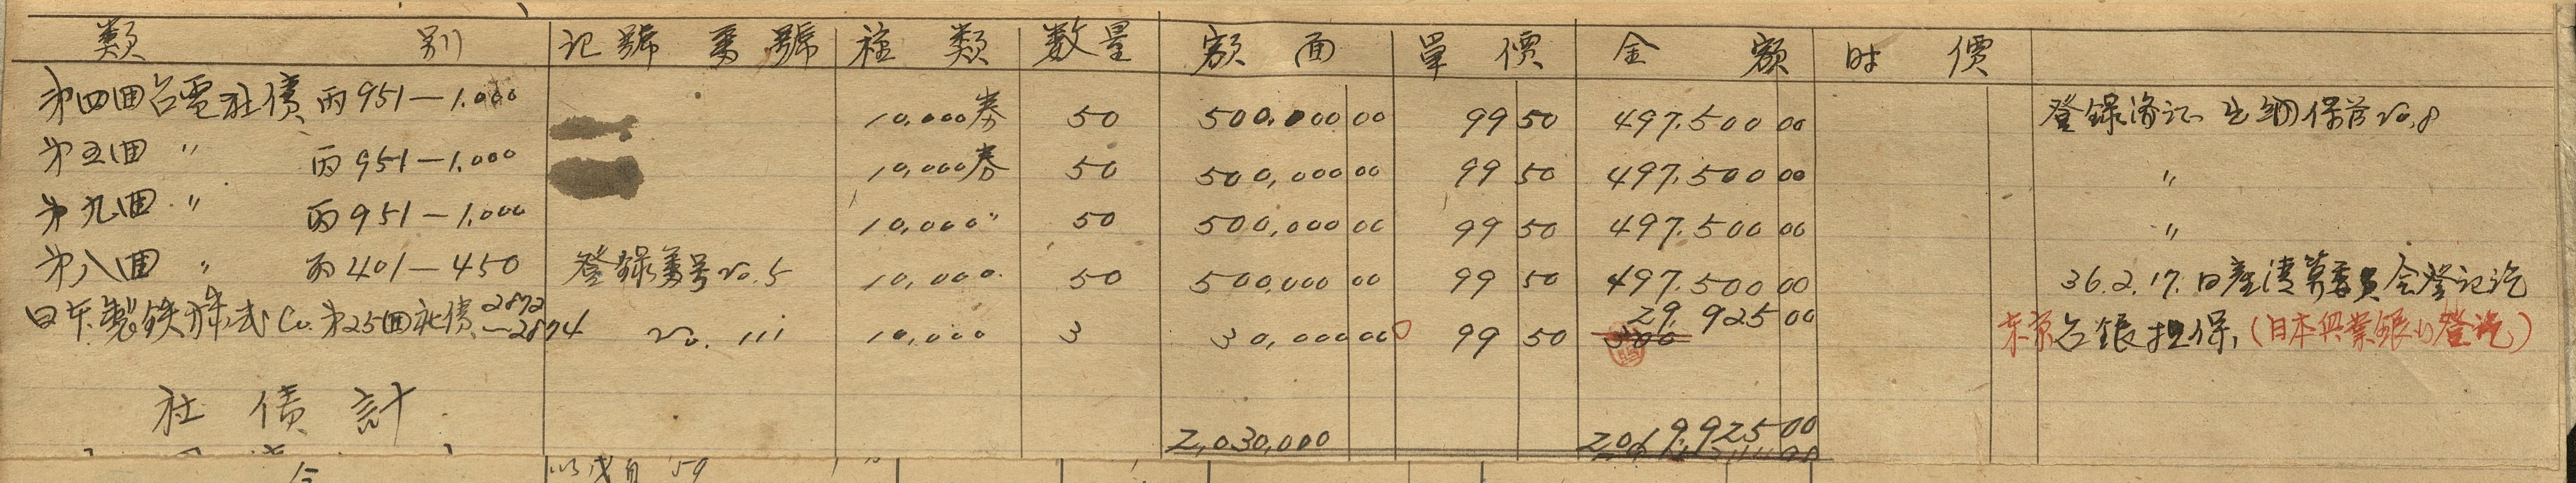 類別 記號番號 種類 数量 額面 單價 金額 时價
才四回台電社債 丙951—1.000 10,000券 50 500,000 00 99 50 497.500 00 登録済記 生細保管 No.8
才五回 〃 丙951—1.000 10,000券 50 500,000 00 99 50 497.500 00 〃
才九回 〃 丙951—1.000 10,000〃 50 500,000 00 99 50 497.500 00 〃
才八回 〃 丙401—450 登録番号No.5 10,000. 50 500,000 00 99 50 497.500 00 36.2.17.日産清算委員会登记讫
日本製鉄株式Co.才25回社債 2872—2874 No. 111 10,000 3 30,000 00 99 50 29,925 00 东京台銀担保,(日本興業銀行登讫)
社債計 2,030,000 2,019,925 00